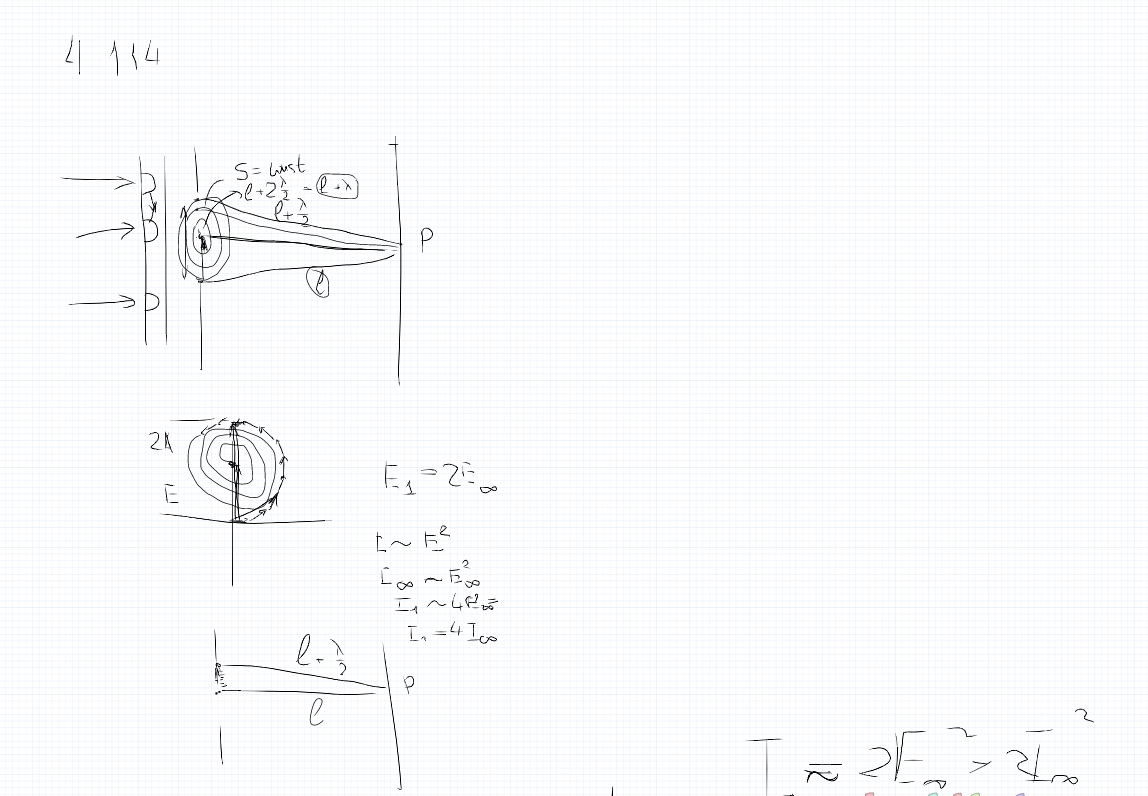 S = const
l + 2 λ/2 = l + λ
l + λ/2
P
l
2A
E
E₁ = 2E∞
I ~ E²
I∞ ~ E²∞
I₁ ~ 4E²∞ =
I₁ = 4 I∞
l + λ/2
P
l